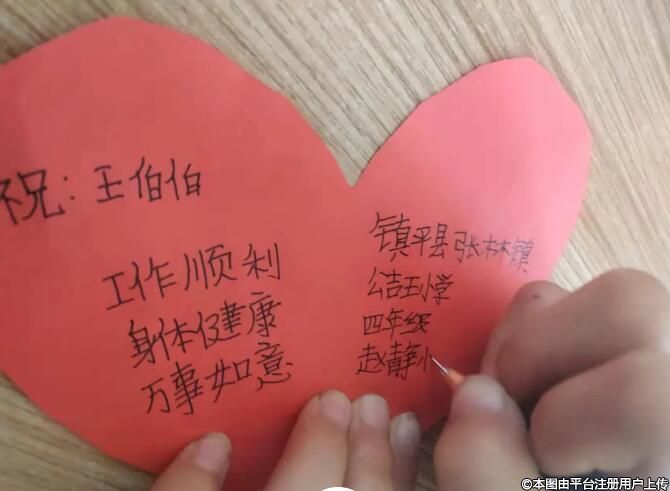 祝：王伯伯
工作顺利
身体健康
万事如意
镇平县张林镇
公吉王小学
四年级
赵静小
©本图由平台注册用户上传